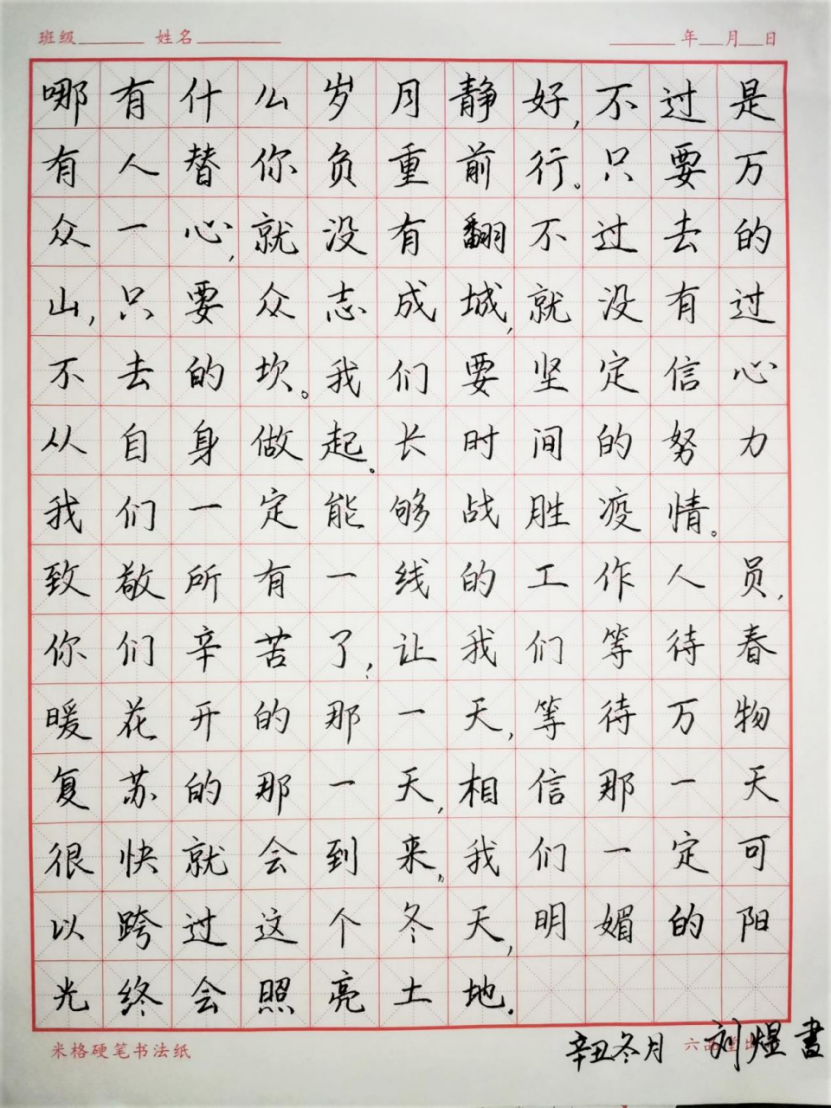 班级 姓名 年 月 日
哪有什么岁月静好,不过是
有人替你负重前行。只要万
众一心,就没有翻不过去的
山,只要众志成城,就没有过
不去的坎。我们要坚定信心
从自身做起。长时间的努力
我们一定能够战胜疫情。
致敬所有一线的工作人员,
你们辛苦了,让我们等待春
暖花开的那一天,等待万物
复苏的那一天,相信那一天
很快就会到来,我们一定可
以跨过这个冬天,明媚的阳
光终会照亮土地.
米格硬笔书法纸 六品堂出
辛丑冬月 刘煜書